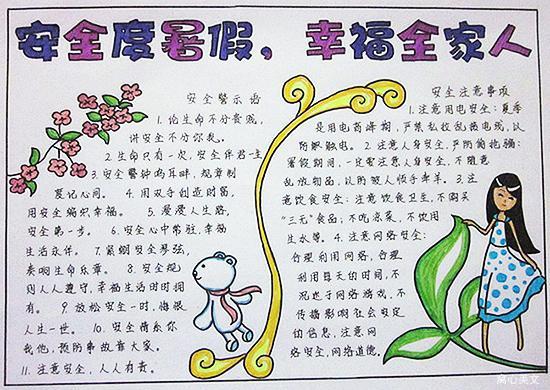 安全度暑假，幸福全家人
安全警示语
1. 论生命不分贵贱，
讲安全不分你我。
2. 生命只有一次，安全伴君一生
3. 安全警钟鸣耳畔，规章制
度记心间。 4. 用双手创造财富，
用安全编织幸福。 5. 漫漫人生路，
安全第一步。 6. 安全心中常驻，幸福
生活永伴。 7. 紧绷安全琴弦，
奏响生命乐章。 8. 安全规
则人人遵守，幸福生活时时拥
有。 9. 放松安全一时，悔恨
人生一世。 10. 安全情系你
我他，预防事故靠大家。
11. 注意安全，人人有责。
安全注意事项
1. 注意用电安全：夏季
是用电高峰期，严禁私拉乱接电线，以
防触电。 2. 注意人身安全，严防偷抢骗：
暑假期间，一定要注意人身安全，不随意
乱放物品，以防被人顺手牵羊。 3. 注
意饮食安全：注意饮食卫生，不购买
“三无”食品；不吃凉菜，不饮用
生水等。 4. 注意网络安全：
合理利用网络，合理
利用每天的时间，不
沉迷于网络游戏，不
传播影响社会安定
的信息，注意网
络安全，网络道德。